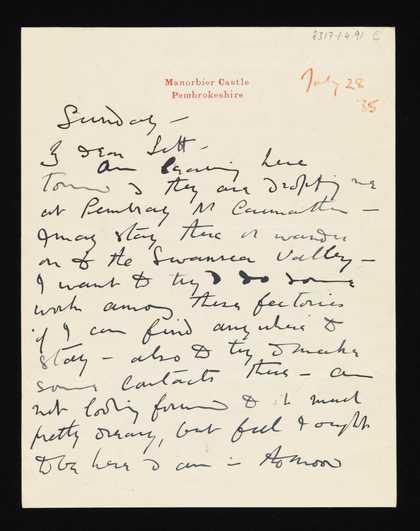 8317.1.4.91
Manorbier Castle
Pembrokeshire
July 28
35
Sunday -
My dear
Am leaving here
Tomw & they are dropping me
at Pembray Nr Carmarthen -
I may stay there or wander
on to the Swansea Valley -
I want to try & do some
work among these factories
if I can find anywhere to
stay - also to try & make
some contacts there - am
not looking forward to it much
pretty dreary, but feel I ought
to be here I am -